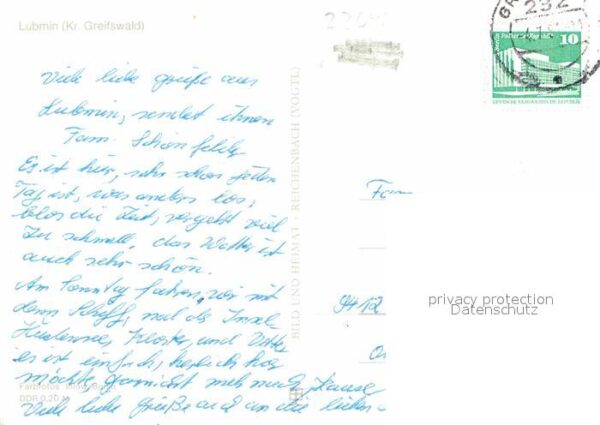 Lubmin (Kr. Greifswald)
Viele liebe Grüße aus
Lubmin, sendet ihnen
Fam. Schönfeldt
Es ist hier, sehr schön jeden
Tag ist, was anders los,
blos die Zeit, vergeht viel
zu schnell, das Wetter ist
auch sehr schön.
Am Sonntag fahren, wir mit
dem Schiff, nach der Insel
Hiddensee, Kloster, und Vitte
es ist einfach, herrlich
möchte garnicht mehr nach Hause
Viele liebe Grüße auch an die lieben
Farbfotos
DDR 0,20 M
BILD UND HEIMAT · REICHENBACH (VOGTL)
232
10
DEUTSCHE DEMOKRATISCHE REPUBLIK
Fam
9412
privacy protection
Datenschutz